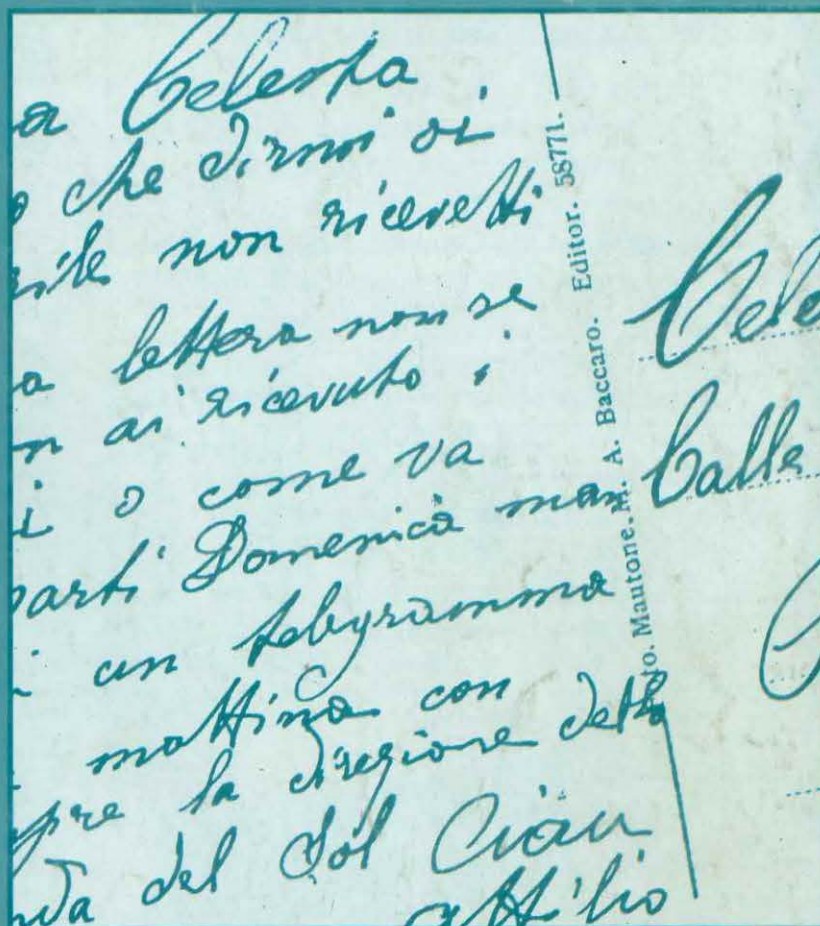 a Celesta
o che dirmi di
rile non ricevetti
a lettera non se
n ai ricevuto i
i o come va
parti Domenica man
i un telegramma
mattina con
mpre la diregione della
nda del Sol Ciau
attilio
to. Mautone. M. A. Baccaro. Editor. 58771.
Cele
Calle